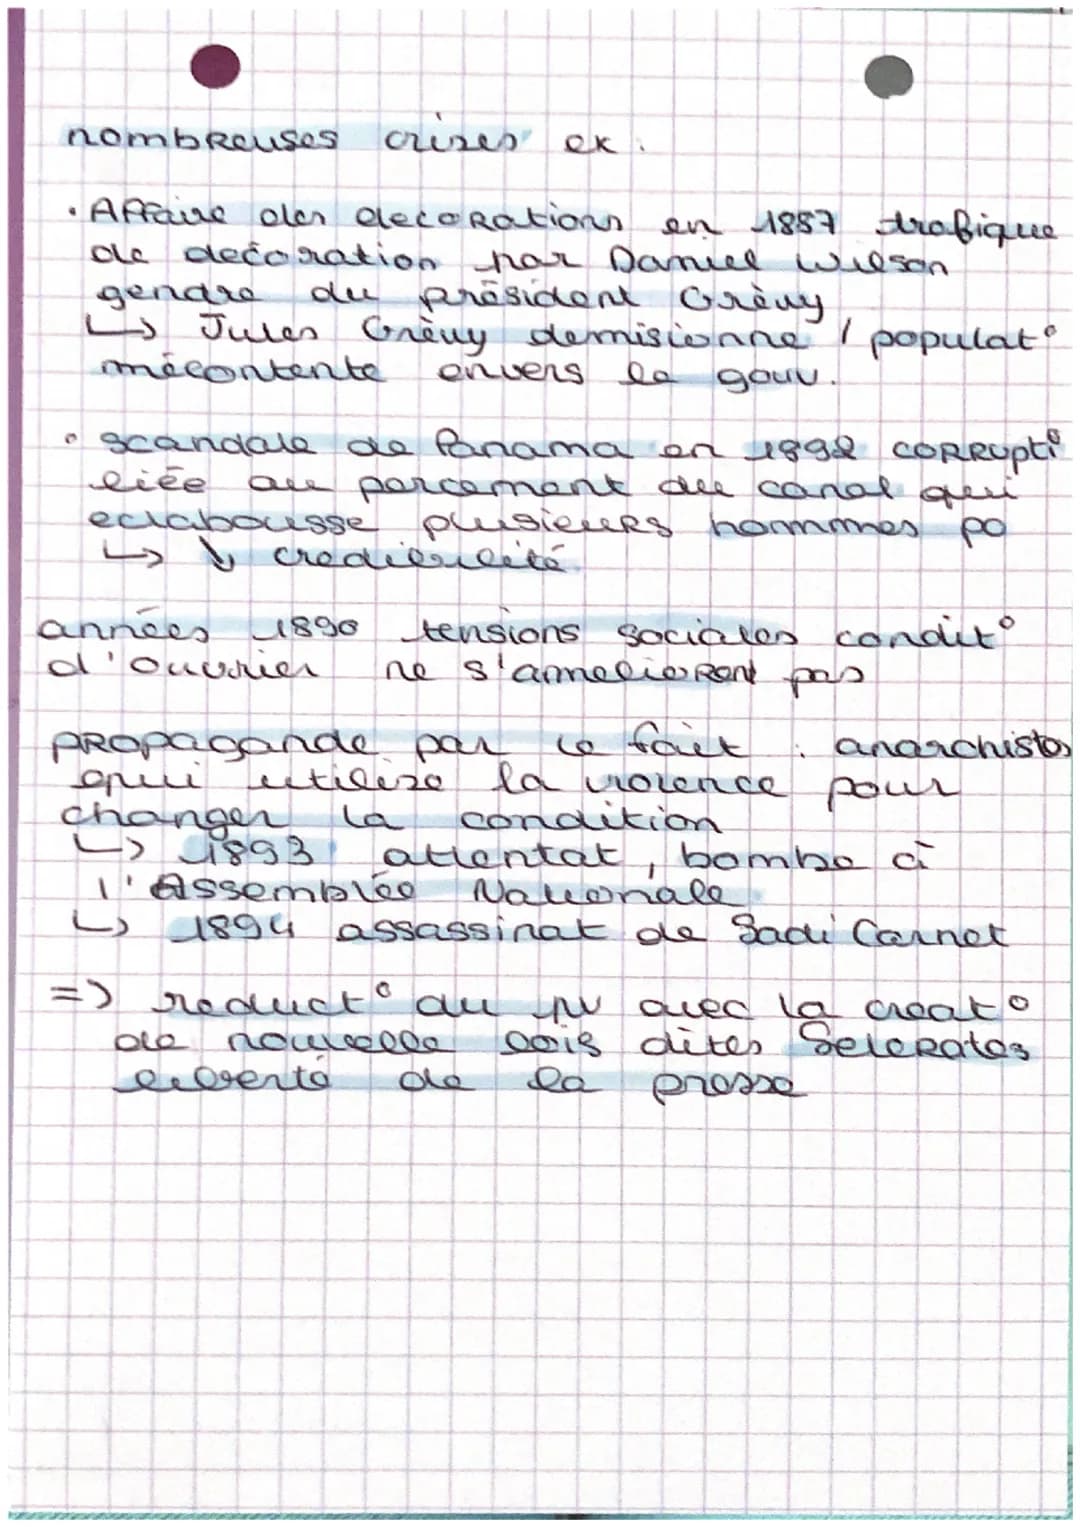 nombreuses crises ex :
• Affaire des decorations en 1887 trafique
de decoration par Daniel Wilson
gendre du président Grèvy
↳ Jules Grèvy demisionne / populat°
mécontente envers le gouv.
• scandale de Panama en 1892 corrupti°
liée au percement du canal qui
eclabousse plusieurs hommes po
↳ ↓ credibilité
années 1890 tensions sociales condit°
d'ouvrier ne s'amelierent pas
propagande par le fait : anarchistes
qui utilise la violence pour
changer la condition
↳ 1893 attentat, bombe à
l'Assemblée Nationale
↳ 1894 assassinat de Sadi Carnot
=> reduct° du pv avec la creat°
de nouvelle lois dites Selerates
liberté de la presse